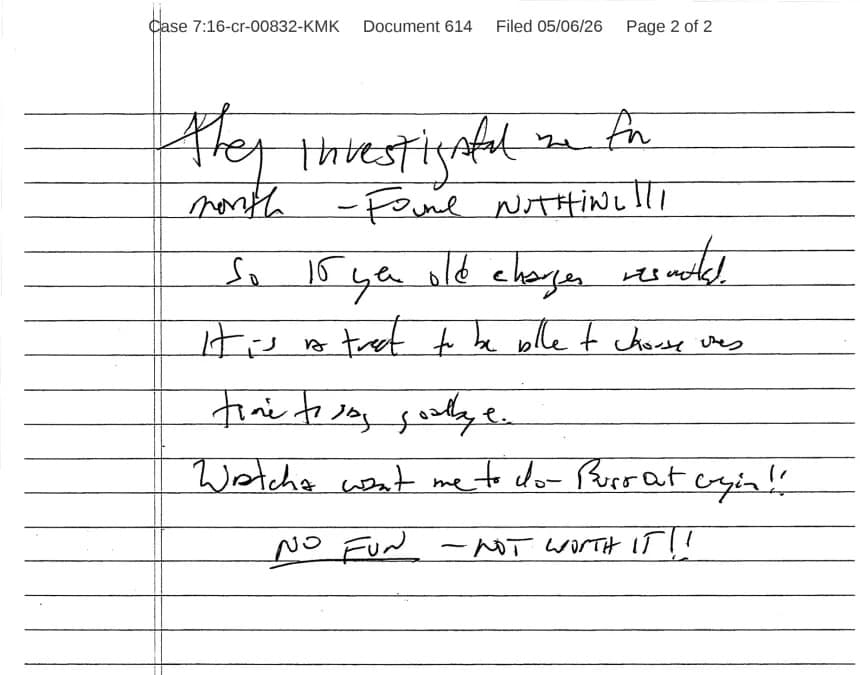 Case 7:16-cr-00832-KMK Document 614 Filed 05/06/26 Page 2 of 2
They investigated me for
month – Found NOTHING!!!
So 15 year old charges resulted.
It is a treat to be able to choose ones
time to say goodbye.
Watcha want me to do – Burst out cryin!!
NO FUN – NOT WORTH IT!!